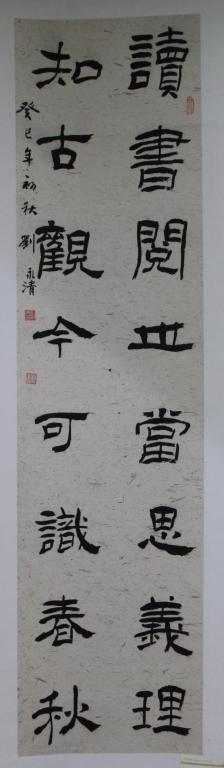 讀書閱世當思義理
知古觀今可識春秋
癸巳年初秋 劉永清